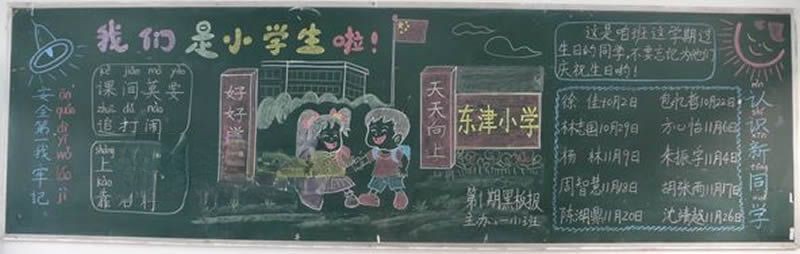 我们是小学生啦！
ān quán dì yī wǒ láo jì
安全第一我牢记
kè jiān mò yào
课间莫要
zhuī dǎ nào
追打闹
shàng
上
kào
靠
好好学
天天向上
东津小学
第1期黑板报
主办:一(1)班
这是咱班这学期过
生日的同学,不要忘记为他们
庆祝生日哟！
徐 佳10月2日
林志国10月29日
杨 林11月9日
周智慧11月18日
陈湖鼎11月20日
包忆哲10月22日
方心怡11月6日
朱振宇11月4日
胡张雨11月17日
沈靖越11月26日
认识新同学